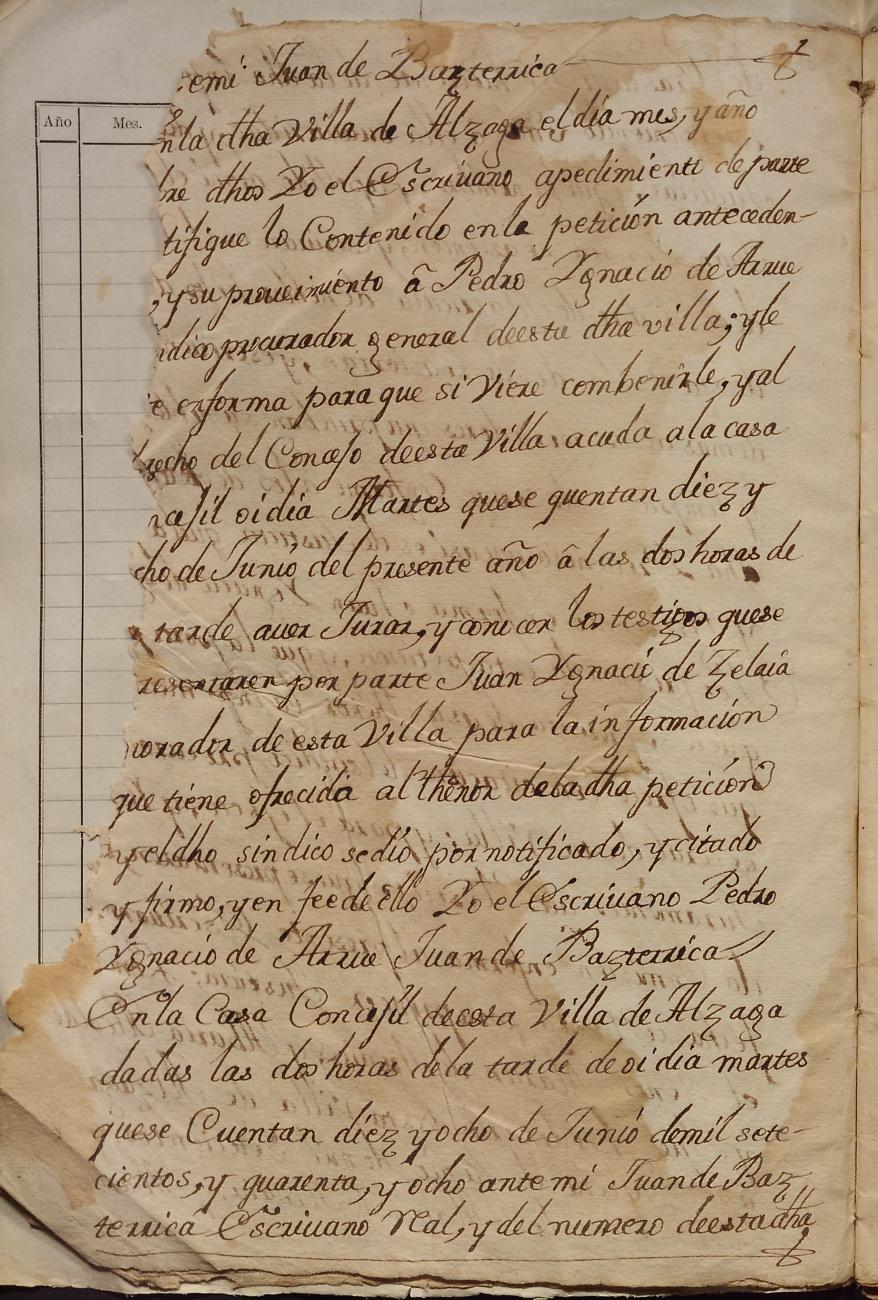 emi Juan de Bazterrica
Año Mes.
nla dha Villa de Alzaga el dia mes, y año
bre dhos Yo el Esčriuano apedimiento de parte
tifique lo Contenido en la petición anteceden-
, y su proueimiento â Pedro Ygnacio de Arrue
indico procurador general deesta dha villa; y le
e enforma para que si Viere combenirle, y al
recho del Concejo deesta Villa acuda a la casa
ncejil oi dia Martes quese quentan diez y
cho de Junio del presente año â las dos horas de
tarde auer Jurar, y conocer los testigos quese
resentaren por parte Juan Ygnacio de Zelaia
morador de esta Villa para la información
que tiene ofrecida al thenor dela dha petición
y eldho sindico sedió por notificado, y citado
y firmo, y en fee de ello Yo el Escriuano Pedro
Ygnacio de Arrue Juan de Bazterrica
Enla Casa Concejil deesta Villa de Alzaga
dadas las dos horas dela tarde de oi dia martes
quese Cuentan diez y ocho de Junio demil sete-
cientos, y quarenta, y ocho ante mi Juan de Baz
terrica Escriuano Real, y del numero deesta dha